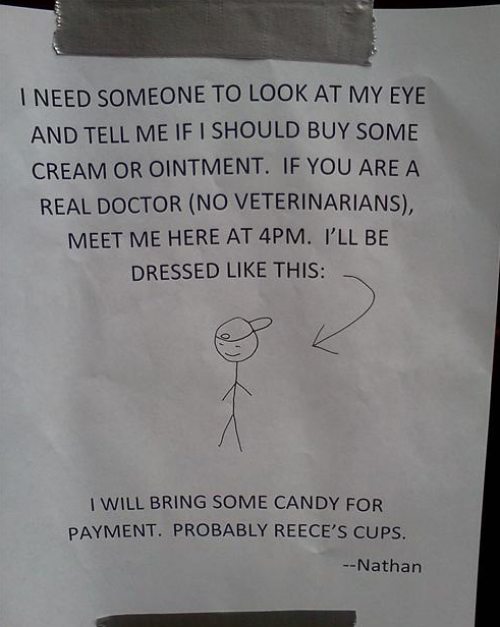 I NEED SOMEONE TO LOOK AT MY EYE
AND TELL ME IF I SHOULD BUY SOME
CREAM OR OINTMENT. IF YOU ARE A
REAL DOCTOR (NO VETERINARIANS),
MEET ME HERE AT 4PM. I'LL BE
DRESSED LIKE THIS:
I WILL BRING SOME CANDY FOR
PAYMENT. PROBABLY REECE'S CUPS.
--Nathan